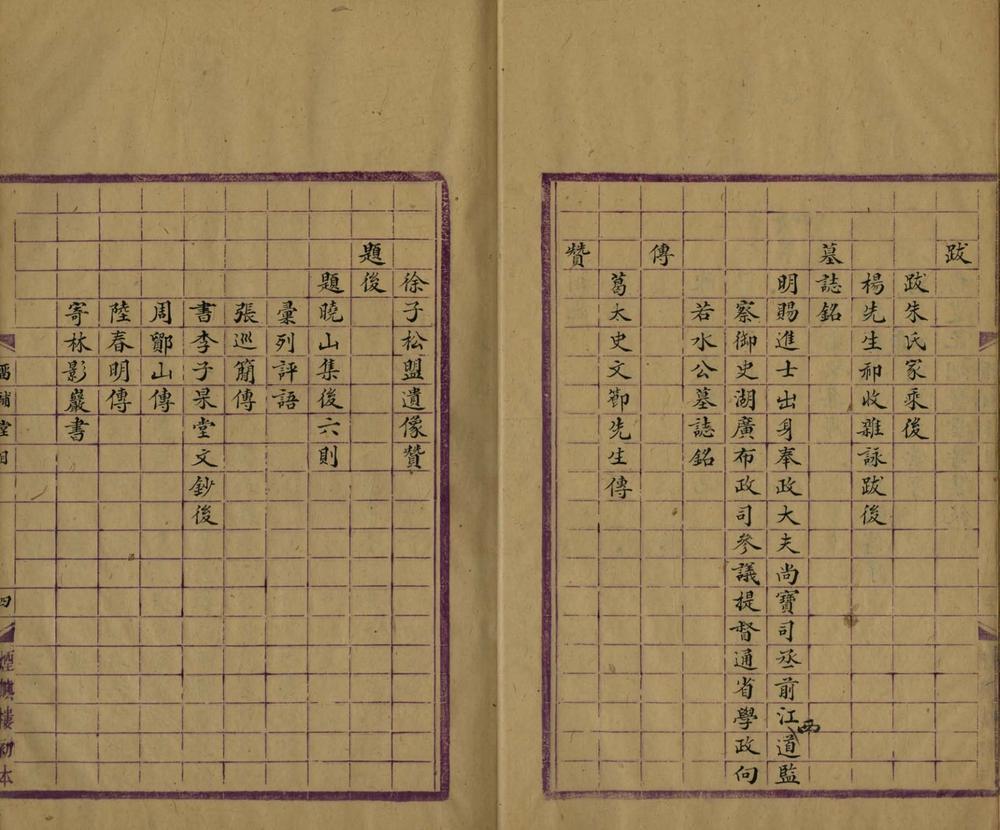 跋
跋朱氏家乘後
楊先生和收雜詠跋後
墓誌銘
明賜進士出身奉政大夫尚寶司丞前江西道監
察御史湖廣布政司參議提督通省學政向
若水公墓誌銘
傳
葛太史文御先生傳
贊
徐子松盟遺像贊
題後
題曉山集後六則
彚列評語
張巡簡傳
書李子杲堂文鈔後
周鄮山傳
陸春明傳
寄林影巖書
堂目
四
煙嶼樓初本